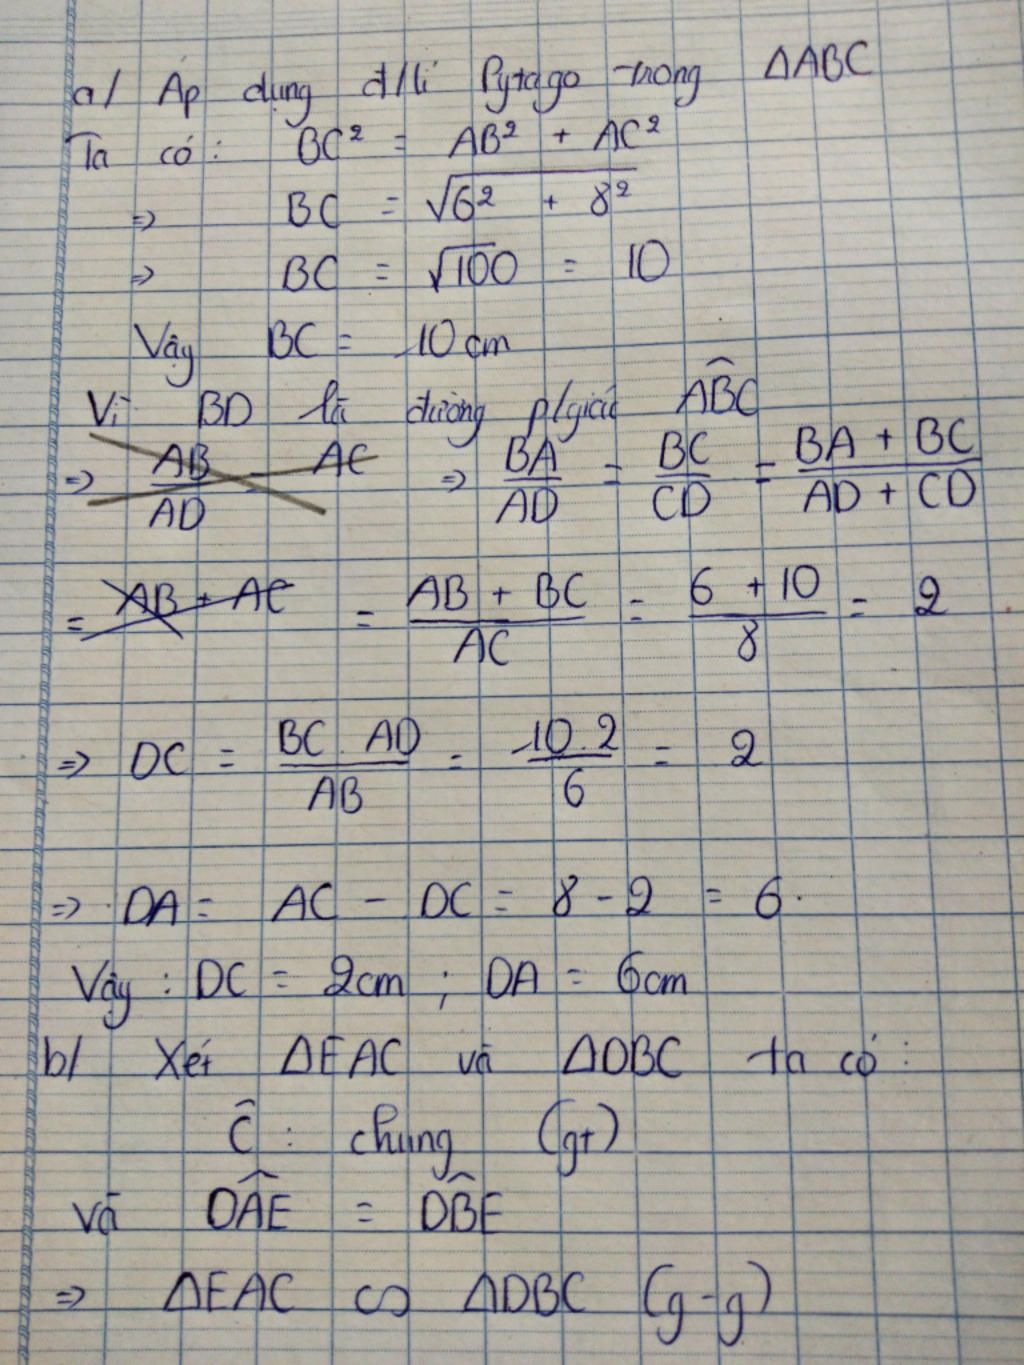 a/ Áp dụng đ/lí Pytago trong ΔABC
Ta có: BC² = AB² + AC²
=> BC = √6² + 8²
=> BC = √100 = 10
Vậy BC = 10cm
Vì BD là đường p/giác ABC
=> AB/AD = AC => BA/AD = BC/CD = BA + BC/AD + CD
= AB + AC = AB + BC/AC = 6 + 10/8 = 2
=> DC = BC . AD/AB = 10.2/6 = 2
=> DA = AC - DC = 8 - 2 = 6.
Vậy : DC = 2cm ; DA = 6cm
b/ Xét ΔEAC và ΔDBC ta có:
Ĉ : chung (gt)
và DÂE = DB̂E
=> ΔEAC ∽ ΔDBC (g-g)